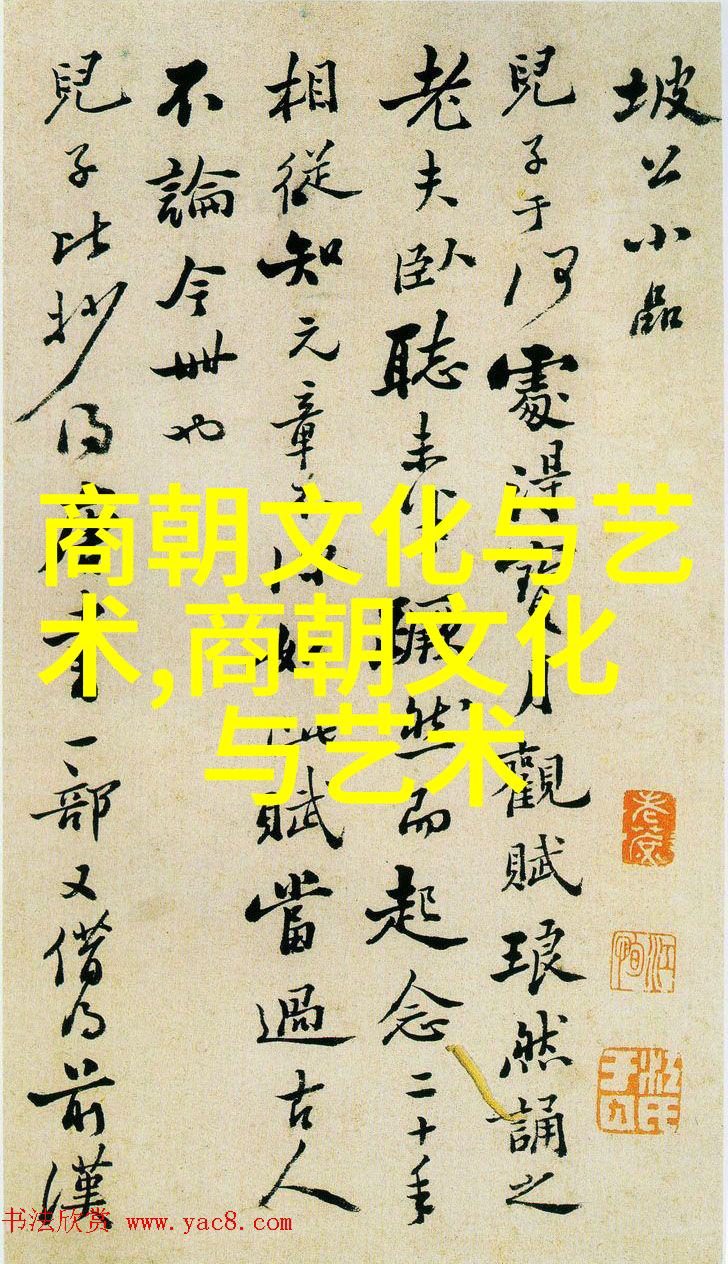 坡公小品
兒子于何處得寶月觀賦琅然誦之
老夫臥聽未半躍然而起念二十年
相從知元章不深如此賦當過古人
不論今世也
兒子比抄得唐書一部又借得前漢
商朝文化与艺
术,商朝文化
与艺术
书法欣赏 www.yac8.com